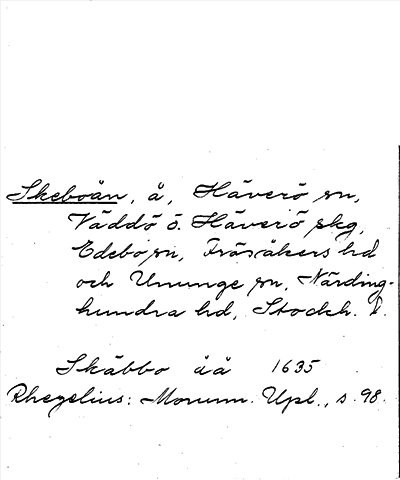 Skeboån, å, Häverö sn,
Väddö o. Häverö skg,
Edebo sn, Frösåkers hd
och Ununge sn, Närding-
hundra hd, Stockh. l.
Skäbbo åå 1635
Rhezelius: Monum. Upl., s. 98.